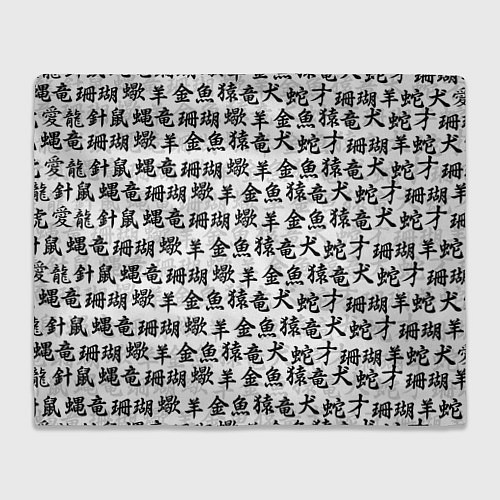 蝿竜珊瑚蠍羊金魚猿竜犬蛇才珊瑚羊蛇犬愛
愛龍針鼠蝿竜珊瑚蠍羊金魚猿竜犬蛇才珊瑚羊
蝿竜珊瑚蠍羊金魚猿竜犬蛇才珊瑚羊蛇犬
愛龍針鼠蝿竜珊瑚蠍羊金魚猿竜犬蛇才珊瑚
龍針鼠蝿竜珊瑚蠍羊金魚猿竜犬蛇才珊瑚羊蛇
虎愛龍針鼠蝿竜珊瑚蠍羊金魚猿竜犬蛇才珊
鼠蝿竜珊瑚蠍羊金魚猿竜犬蛇才珊瑚羊蛇
愛龍針鼠蝿竜珊瑚蠍羊金魚猿竜犬蛇才珊瑚
蝿竜珊瑚蠍羊金魚猿竜犬蛇才珊瑚羊蛇犬
龍針鼠蝿竜珊瑚蠍羊金魚猿竜犬蛇才珊瑚羊
蝿竜珊瑚蠍羊金魚猿竜犬蛇才珊瑚羊蛇犬愛
龍針鼠蝿竜珊瑚蠍羊金魚猿竜犬蛇才珊瑚羊
針鼠蝿竜珊瑚蠍羊金魚猿竜犬蛇才珊瑚羊蛇